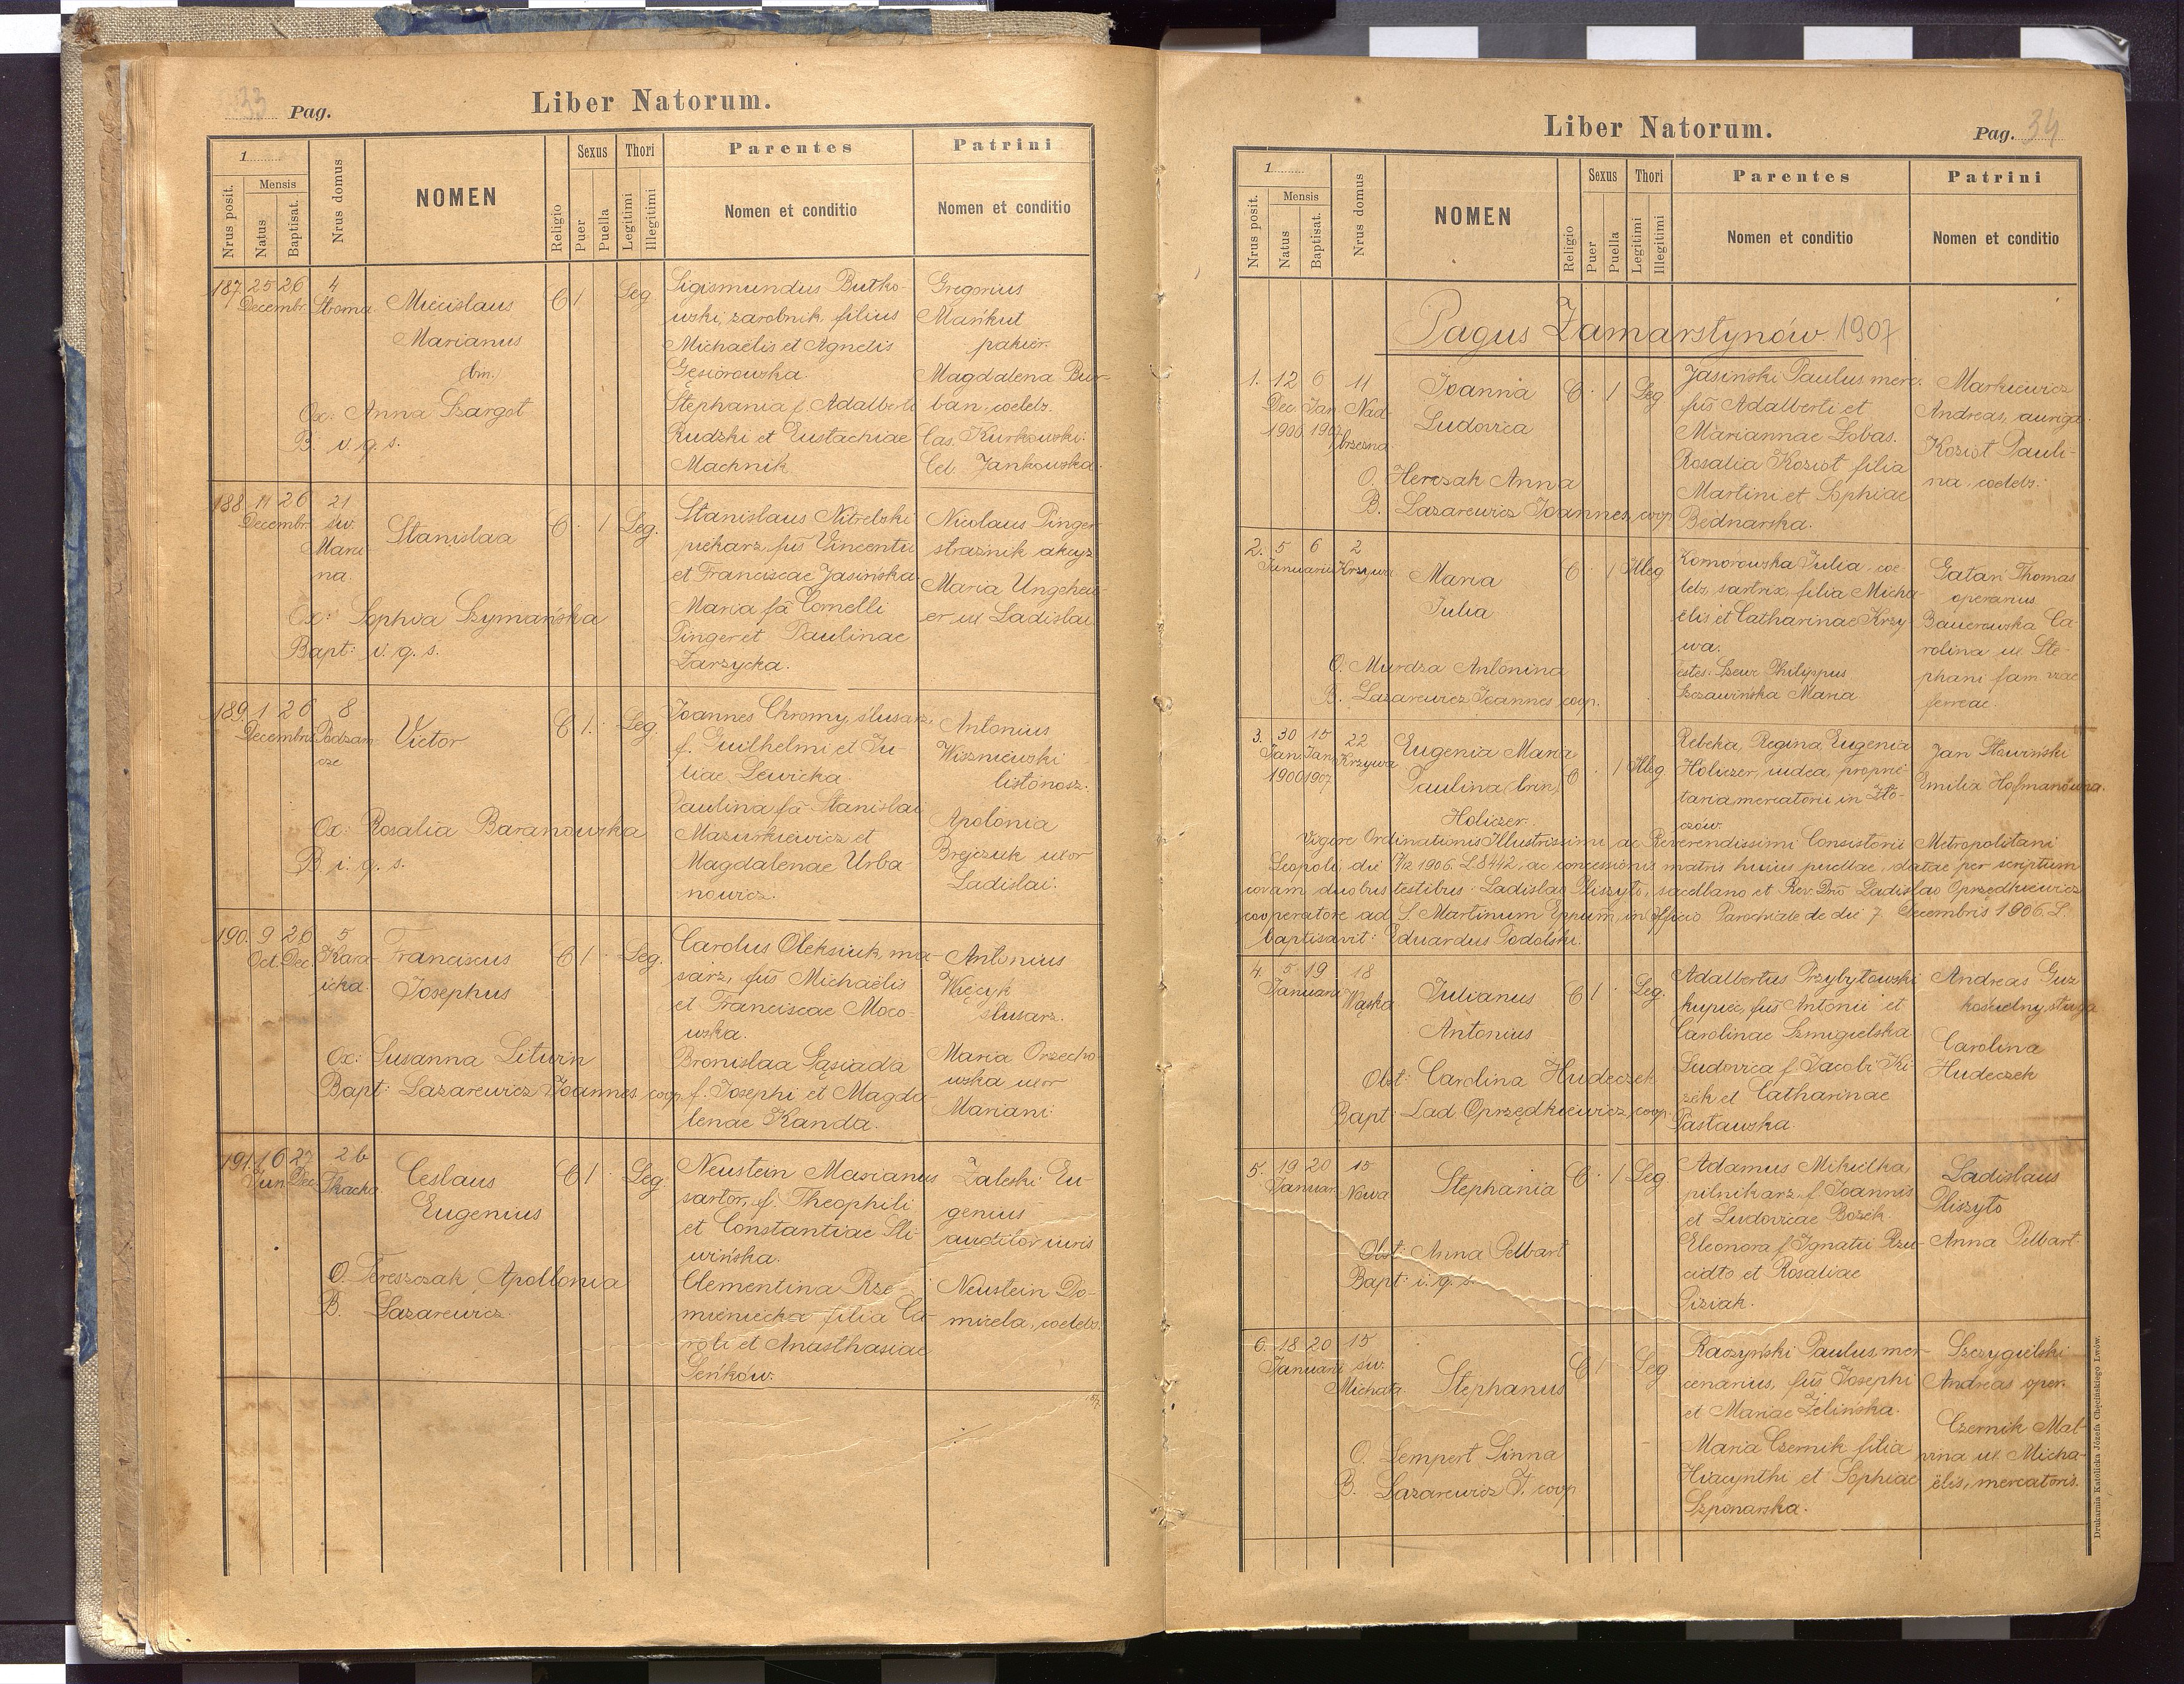 33 Pag.
Liber Natorum.
1
Nrus posit.
Mensis
Natus
Baptisat.
Nrus domus
NOMEN
Religio
Sexus
Puer
Puella
Thori
Legitimi
Illegitimi
Parentes
Nomen et conditio
Patrini
Nomen et conditio
187. 25 26 4
Decembr. Słoma
Miecislaus
Marianus
(bm.)
C 1 Leg.
Ox: Anna Szargot
B. i. q. s.
Sigismundus Butko-
wski, zarobnik, filius
Michaëlis et Agnetis
Gęsiorowska.
Stephania f. Adalberti
Rudzki et Eustachiae
Machnik
Gregorius
Mańkut
pakier.
Magdalena Bur-
ban, coelebs.
Cas. Kurkowski.
Cel. Jankowska.
188 11 26 21
Decembr. św.
Marci-
na.
Stanislaa
C · 1 Leg.
Ox: Sophia Szymańska
Bapt: i. q. s.
Stanislaus Nitrebski
piekarz, fus Vincentii
et Franciscae Jasińska.
Maria fa Cornelli
Pinger et Paulinae
Zarzycka.
Nicolaus Pinger
strażnik akcyz.
Maria Ungeheu-
er ux Ladislai
189. 1 26 8
Decembris Podzam-
cze
Victor
C 1. · Leg.
Ox: Rosalia Baranowska
B. i. q. s.
Joannes Chromy, ślusarz
f. Guilhelmi et Ju-
liae Lewicka.
Paulina fa Stanislai
Mazurkiewicz et
Magdalenae Urba-
nowicz.
Antonius
Wiszniewski
listonosz.
Apolonia
Brejczuk uxor
Ladislai.
190. 9 26 5
Oct. Dec. Kara-
icka.
Franciscus
Josephus
C 1 · Leg.
Ox: Susanna Litwin
Bapt: Lazarewicz Joannes, coop.
Carolus Oleksiuk, ma-
sarz, fus Michaëlis
et Franciscae Moco-
wska.
Bronislaa Gąsiada
f. Josephi et Magda-
lenae Kanda.
Antonius
Więcyk
ślusarz.
Maria Orzecho-
wska uxor
Mariani.
191. 16 27 26
Jun. Dec. Tkacka
Ceslaus
Eugenius
C 1 · Leg.
O. Tereszczak Apollonia
B. Lazarewicz
Neustein Marianus
sartor, f. Theophili
et Constantiae Śli-
wińska.
Clementina Rze-
mieniecka filia Ca-
roli et Anasthasiae
Seńków.
Zaleski Eu-
genius
auditor iuris
Neustein Do-
micela, coelebs.
Liber Natorum.
Pag. 34
1
Nrus posit.
Mensis
Natus
Baptisat.
Nrus domus
NOMEN
Religio
Sexus
Puer
Puella
Thori
Legitimi
Illegitimi
Parentes
Nomen et conditio
Patrini
Nomen et conditio
Pagus Zamarstynów. 1907
1. 12 6 11
Dec. Jan. Nad-
1906 1907 brzeżna.
Joanna
Ludovica
C · 1 Leg
O. Herczak Anna
B. Lazarewicz Joannes, coop.
Jasiński Paulus merc.
fus Adalberti et
Mariannae Łobas.
Rosalia Kozioł filia
Martini et Sophiae
Bednarska.
Markiewicz
Andreas, auriga.
Kozioł Pauli-
na, coelebs.
2. 5 6 2
Januarii Krzywa
Maria
Julia
C · 1 Illeg
O. Murdza Antonina
B. Lazarewicz Joannes coop.
Komorowska Julia, coe-
lebs, sartrix, filia Micha-
ëlis et Catharinae Krzy-
wa.
testes: Szewc Philippus
Szczawińska Maria
Gatań Thomas
operarius
Bauerowska Ca-
rolina ux. Ste-
phani fam. viae
ferreae
3. 30 15 22
Jan. Jan. Krzywa
1900 1907
Eugenia Maria
Paulina trin.
Holiczer.
C · 1 Illeg
Rebeka, Regina Eugenia
Holiczer, iudea, proprie-
taria mercatorii in Zło-
czów.
Jan Sławiński
Emilia Hofmanówna.
Vigore Ordinationis Illustrissimi ac Reverendissimi Consistorii Metropolitani
Leopoli, die 7/12 1906. L 8442, ac concessionis matris huius puellae, datae per scriptum
coram duobus testibus. Ladislao Pliszyto, sacellano et Rev. Dno Ladislao Oprzędkiewicz
cooperatore ad S. Martinum Eppum, in Officio Parochiale de die 7 Decembris 1906. L.
baptisavit: Eduardus Podolski.
4. 5 19 18
Januarii Wąska
Julianus
Antonius
C 1 · Leg.
Obst: Carolina Hudeczek
Bapt: Lad. Oprzędkiewicz, coop.
Adalbertus Przybyłowski
kupiec, fus Antonii et
Carolinae Szmigielska
Ludovica f. Jacobi Ki-
zek et Catharinae
Pasławska.
Andreas Guz
kościelny sługa
Carolina
Hudeczek
5. 19 20 15
Januar. Nowa
Stephania
C · 1 Leg
Obst: Anna Pelbart
Bapt: i. q. s.
Adamus Mikielka
pilnikarz, f. Joannis
et Ludovicae Bożek
Eleonora f. Ignatii Rzu-
cidło et Rosaliae
Piziak.
Ladislaus
Pliszyto
Anna Pelbart
6. 18 20 15
Januarii św.
Michała
Stephanus
C 1 Leg
O. Lempert Linna
B. Lazarewicz J. coop
Raczyński Paulus, mer-
cenarius, fus Josephi
et Mariae Zielińska.
Maria Czernik filia
Hiacynthi et Sophiae
Szponarska.
Szczygielski
Andreas oper.
Czernik Mal-
vina ux. Micha-
ëlis, mercatoris.
Drukarnia Katolicka Józefa Chęcińskiego Lwów.